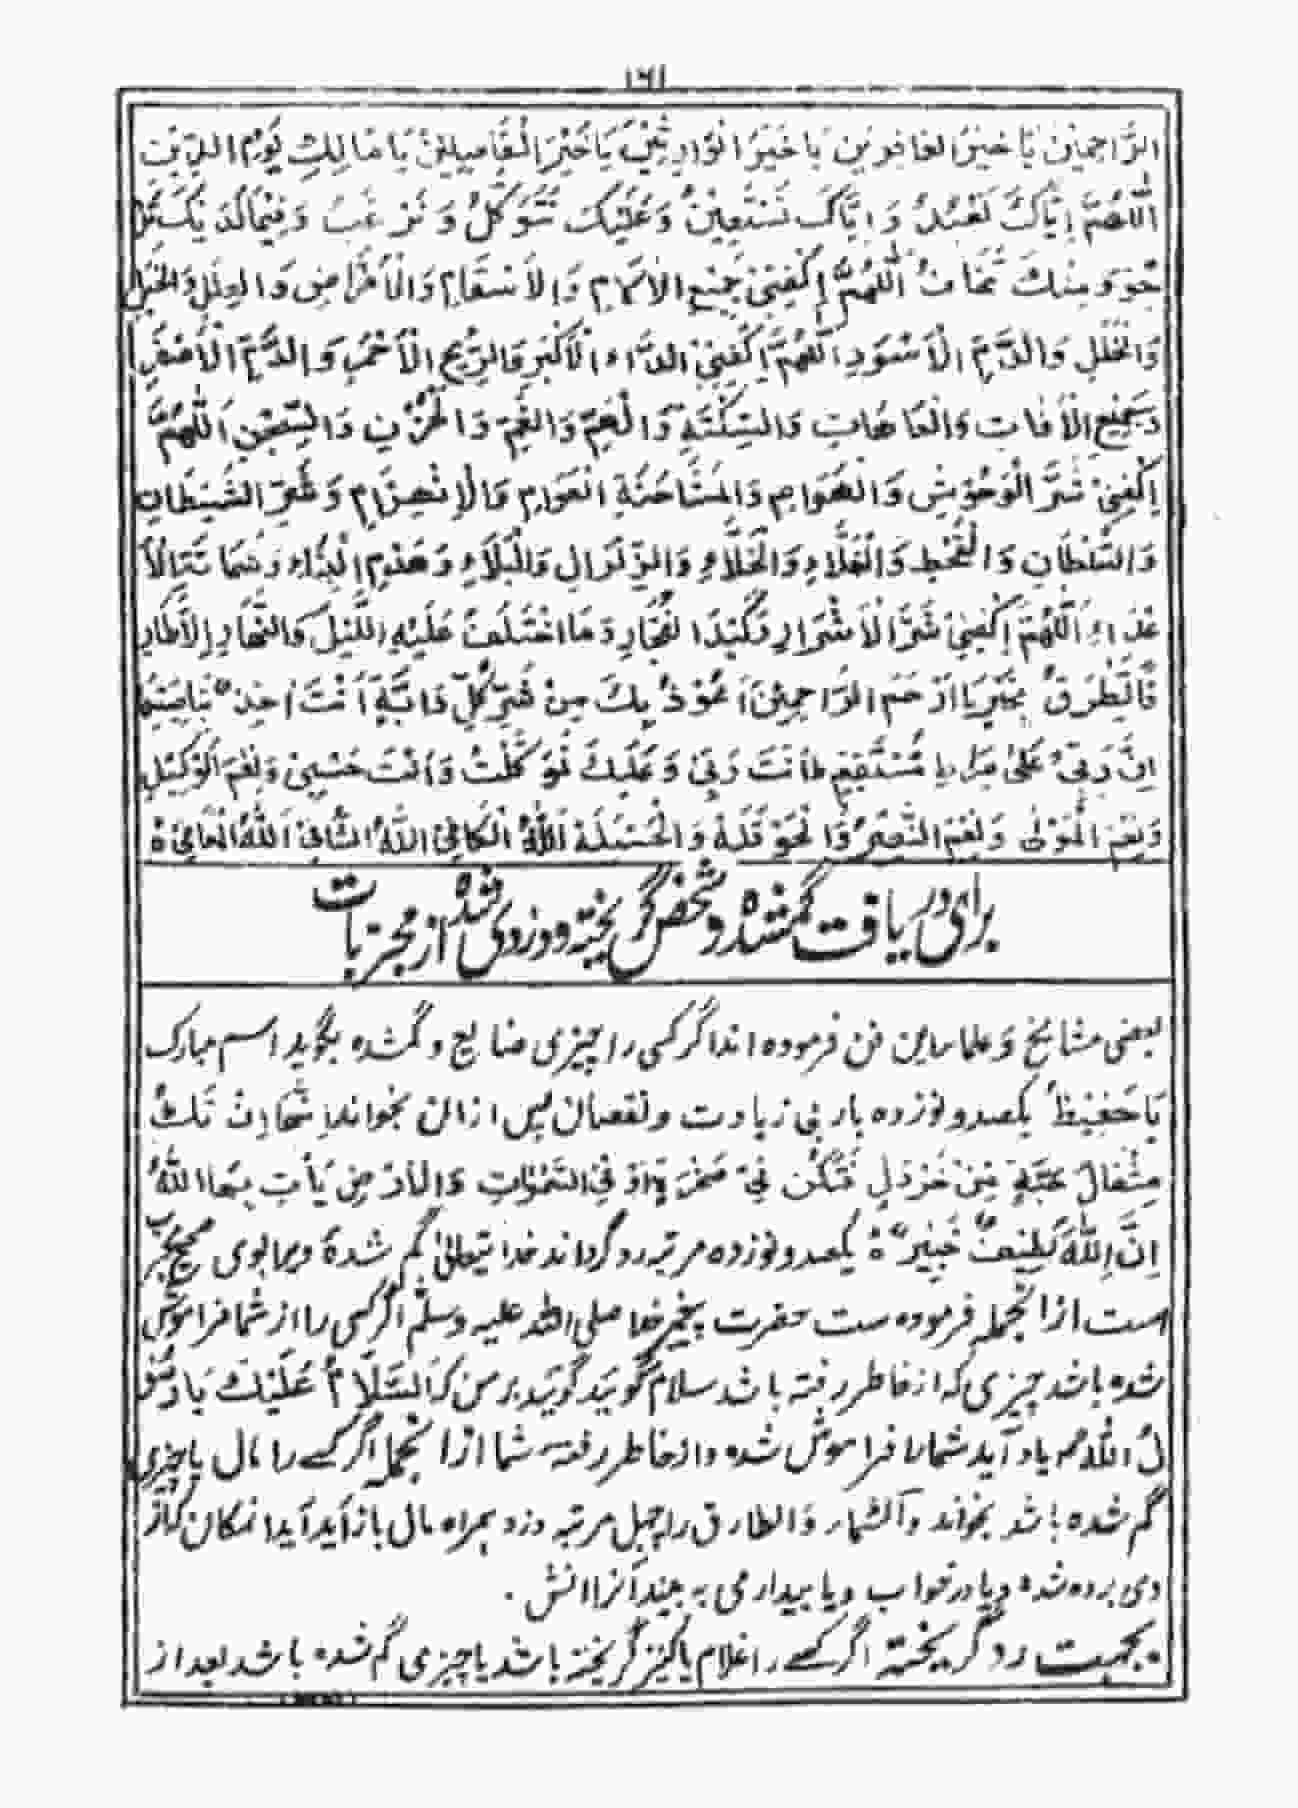 ١٦١
الرَّاحِمِيْنَ يَا خَيْرَ الغَافِرِيْنَ يَا خَيْرَ الْوَارِثِيْنَ يَا خَيْرَ الْفَاصِلِيْنَ يَا مَالِكِ يَوْمِ الدِّيْنِ
اَللّٰهُمَّ اِيَّاكَ نَعْبُدُ وَ اِيَّاكَ نَسْتَعِيْنُ وَعَلَيْكَ نَتَوَكَّلُ وَ نَرْغَبُ وَفِيْمَا لَدَيْكَ
وَمِنْكَ نَخَافُ اَللّٰهُمَّ اِكْفِنِيْ جَمِيْعِ الْاٰلَامِ وَالْاَسْقَامِ وَالْاَمْرَاضِ وَالعِلَلِ
وَالْخَلَلِ وَالدَّمِ الْاَسْوَدِ اَللّٰهُمَّ اِكْفِنِيْ الدَّاءِ الْاَكْبَرِ وَالرِّيْحِ الْاَحْمَرِ وَالدَّمِ الْاَصْفَرِ
وَجَمِيْعِ الْاٰفَاتِ وَالْعَاهَاتِ وَالسَّكْتَةِ وَالْهَمِّ وَالْغَمِّ وَالْحُزْنِ وَالسِّجْنِ اَللّٰهُمَّ
اِكْفِنِيْ شَرَّ الْوَحُوْشِ وَالْهَوَامِ وَالْعَوَامِ وَالْاِنْهِزَامِ وَشَرِّ الشَّيْطَانِ
وَالسُّلْطَانِ وَالْقَحْطِ وَالْغَلَاءِ وَالزِّلْزَالِ وَالْبَلَاءِ وَهَدْمِ الْبِنَاءِ وَشَمَاتَتِ الْاَ
عْدَاءِ اَللّٰهُمَّ اِكْفِنِيْ شَرَّ الْاَشْرَارِ وَكَيْدَ الْفُجَّارِ وَمَا اخْتَلَفَ عَلَيْهِ اللَّيْلَ وَالنَّهَارِ اِلَّا طَارِ
قًا يَّطْرَقُ بِخَيْرٍ يَا اَرْحَمَ الرَّاحِمِيْنَ اَعُوْذُ بِكَ مِنْ شَرِّ كُلِّ دَابَّةٍ اَنْتَ اٰخِذٌ بِنَاصِيَتِهَا
اِنَّ رَبِّيْ عَلٰى صِرَاطٍ مُسْتَقِيْمٍ ط اَنْتَ رَبِّيْ وَعَلَيْكَ تَوَكَّلْتُ وَاَنْتَ حَسْبِيْ وَنِعْمَ الْوَكِيْلِ
وَنِعْمَ الْمَوْلٰى وَنِعْمَ النَّصِيْرُ اَللّٰهُ الْكَافِيْ اَللّٰهُ الشَّافِيْ اَللّٰهُ
برای دریافت گمشده و شخص گریخته و دزدی شده از مجربات
بعضی مشایخ وَ علماء این فن فرموده اند اگر کسی را چیزی ضایع و گمشده بگوید اسم مبارک
یَا حَفِیْظُ یکصد و نوزده بار بی زیادت و نقصان پس ازان بخواند اِنَّهَا اِنْ تَكُ
مِثْقَالَ حَبَّةٍ مِّنْ خَرْدَلٍ فَتَكُنْ فِيْ صَخْرَةٍ اَوْ فِي السَّمٰوٰتِ وَالْاَرْضِ يَاْتِ بِهَا اللّٰهُ
اِنَّ اللّٰهَ لَطِيْفٌ خَبِيْرٌ ہ یکصد و نوزده مرتبه رد گرداند خدا تعالیٰ گم شدهٔ
است ازانجمله فرموده ست حضرت پیغمبر خدا صلی الله علیه وسلّم اگر کسی را از شما فراموش
شده باشد چیزی که از خاطر رفته باشد سلام گوئید گوئید برمن که اَلسَّلَامُ عَلَيْكَ یَا رَسُوْ
لُ اللهِ هم یاد آید شما را فراموش شده و از خاطر رفته شما ازانجمله اگر کسے را مال یا چیزی
گم شده باشد بخواند والسّماء وَالطارق را چهل مرتبه دزد همراه مال باز آید
بُرده شده و یا در خواب و یا بیداری به بیند آنرا انش.
• بجهت رد گریخته اگر کسے را غلام یا کنیز گریخته باشد یا چیزی گم شده باشد بعد از